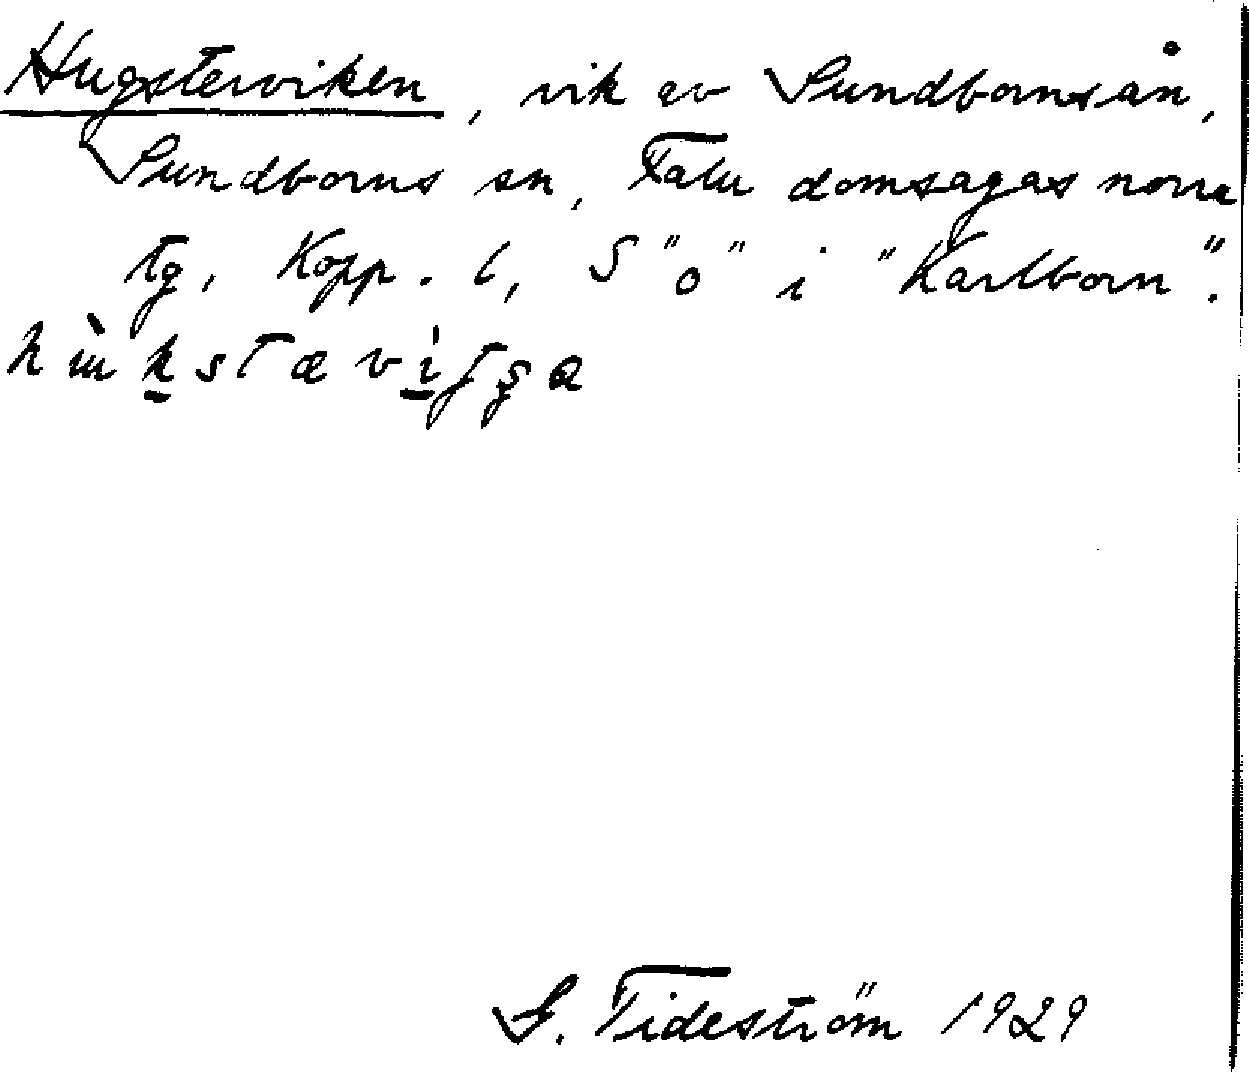 Hugsterviken, vik av Sundbornsån,
Sundborns sn, Falu domsagas norra
tg, Kopp. l, S "o" i "Karlborn".
G. Tideström 1929